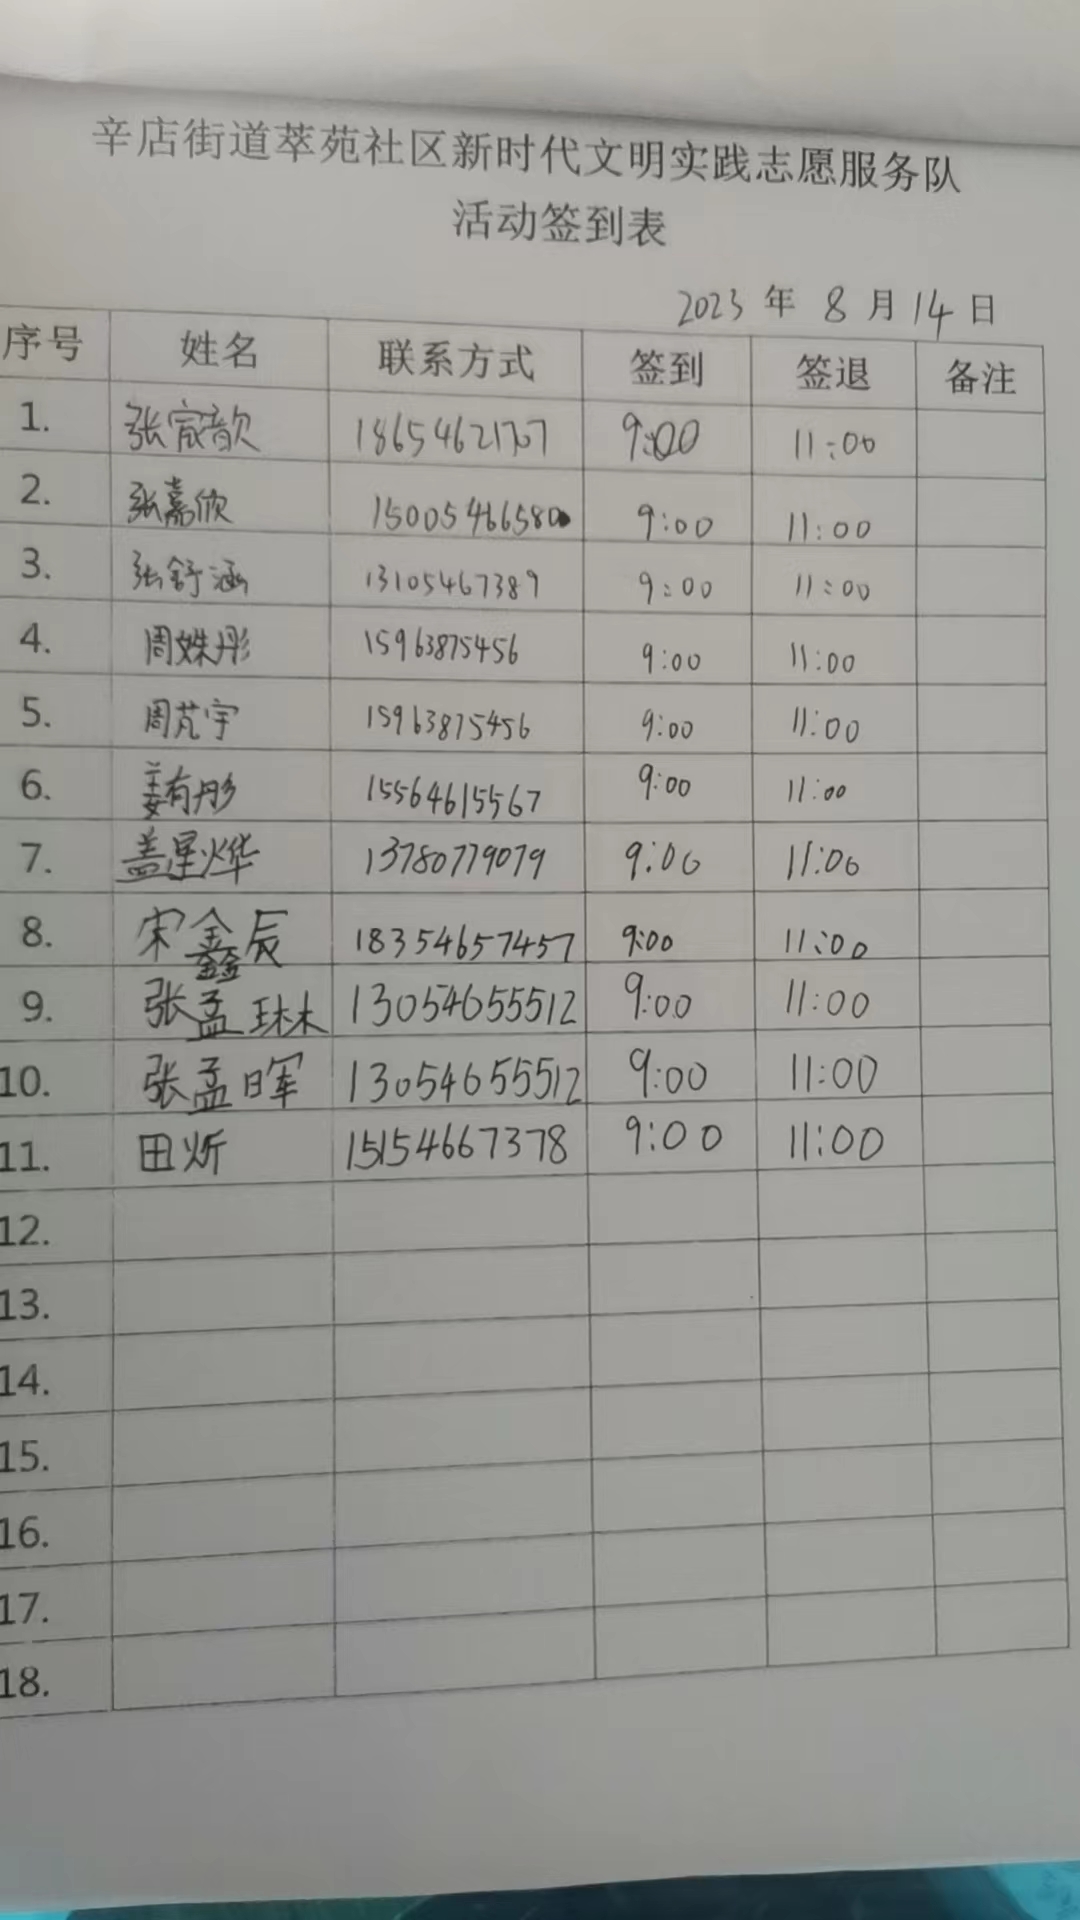 辛店街道萃苑社区新时代文明实践志愿服务队
活动签到表
2023 年 8 月 14 日
序号 姓名 联系方式 签到 签退 备注
1. 张宸歆 18654621707 9:00 11:00
2. 张嘉欣 15005466580 9:00 11:00
3. 张舒涵 13105467389 9:00 11:00
4. 周姝彤 15963875456 9:00 11:00
5. 周芃宇 15963875456 9:00 11:00
6. 姜有彤 15564615567 9:00 11:00
7. 盖星烨 13780779079 9:00 11:00
8. 宋鑫辰 18354657457 9:00 11:00
9. 张孟琳 13054655512 9:00 11:00
10. 张孟晖 13054655512 9:00 11:00
11. 田炘 15154667378 9:00 11:00
12.
13.
14.
15.
16.
17.
18.